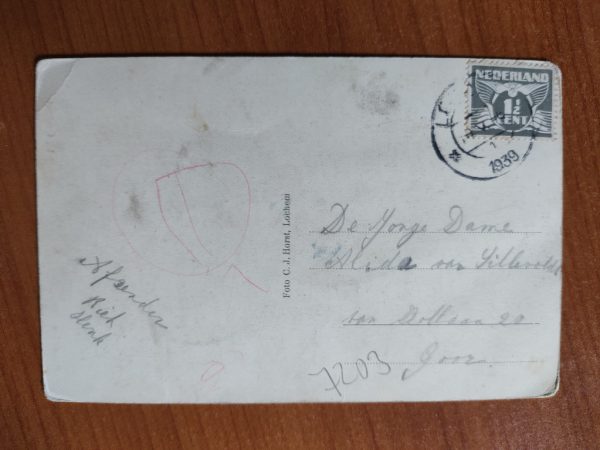 NEDERLAND
1½
CENT
1939
Foto C. J. Horst, Lochem
De Jonge Dame
Alida van Sillevoldt
20
Goor.
Afzender
Riek
Henk
7203